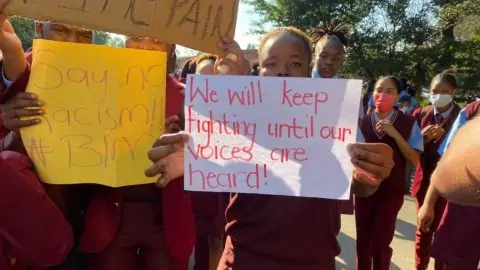 THE PAIN
Say no
Racism!!
# BLM
We will keep
fighting until our
voices are
heard!